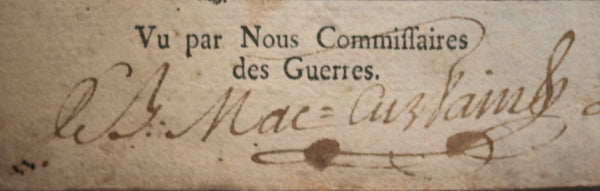 Vu par Nous Commiſſaires
des Guerres.
le B. Mac= Curtain